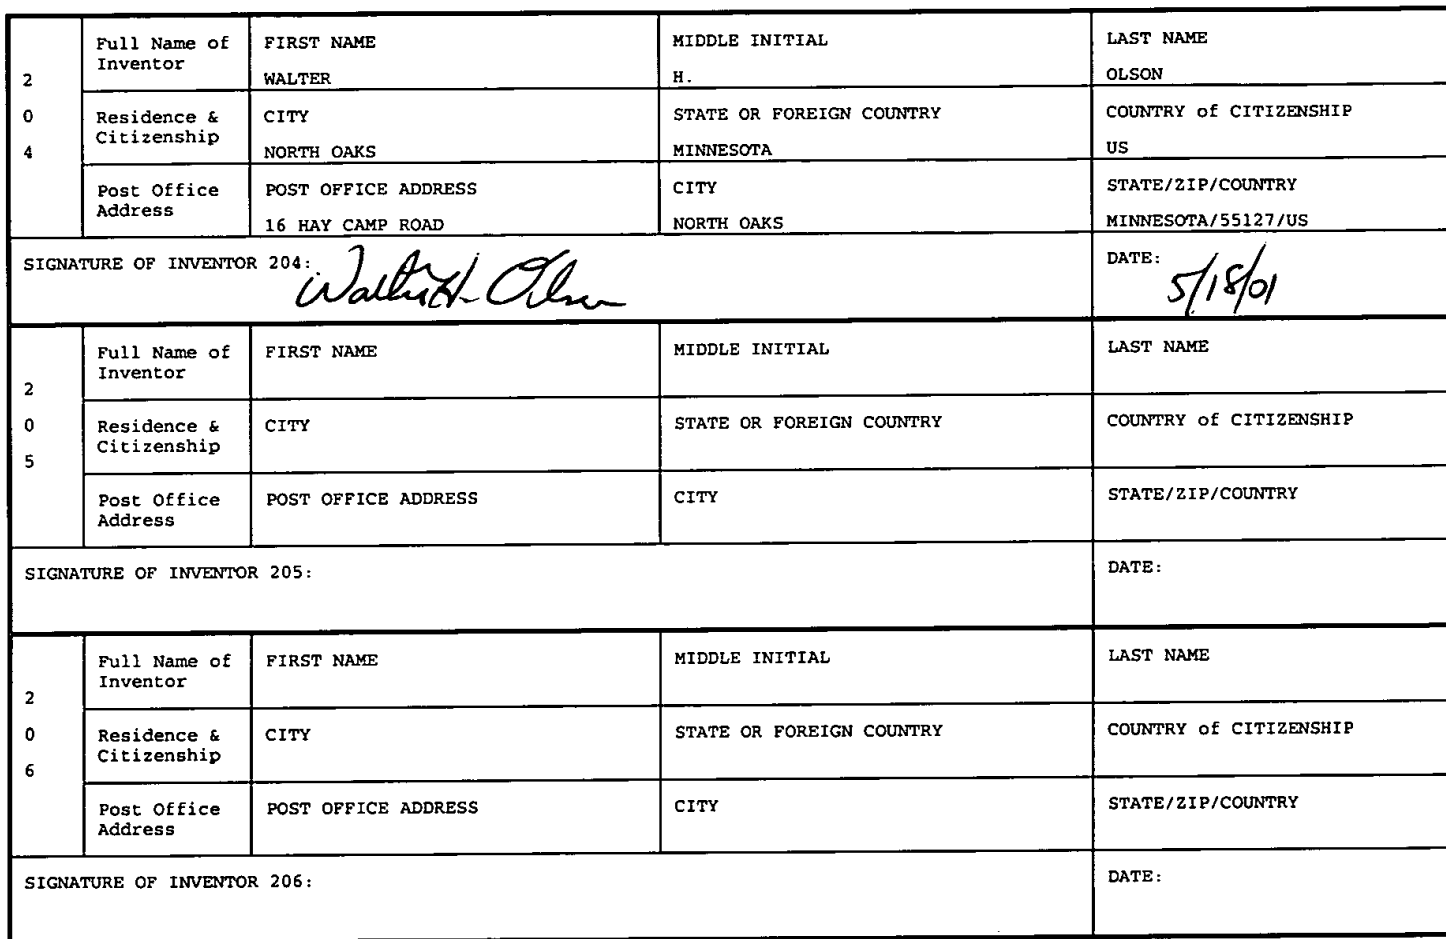 Full Name of Inventor FIRST NAME MIDDLE INITIAL LAST NAME
WALTER H. OLSON
2
0
4
Residence & Citizenship CITY STATE OR FOREIGN COUNTRY COUNTRY of CITIZENSHIP
NORTH OAKS MINNESOTA US
Post Office Address POST OFFICE ADDRESS CITY STATE/ZIP/COUNTRY
16 HAY CAMP ROAD NORTH OAKS MINNESOTA/55127/US
SIGNATURE OF INVENTOR 204: Walter H. Olson DATE: 5/18/01
Full Name of Inventor FIRST NAME MIDDLE INITIAL LAST NAME
2
0
5
Residence & Citizenship CITY STATE OR FOREIGN COUNTRY COUNTRY of CITIZENSHIP
Post Office Address POST OFFICE ADDRESS CITY STATE/ZIP/COUNTRY
SIGNATURE OF INVENTOR 205: DATE:
Full Name of Inventor FIRST NAME MIDDLE INITIAL LAST NAME
2
0
6
Residence & Citizenship CITY STATE OR FOREIGN COUNTRY COUNTRY of CITIZENSHIP
Post Office Address POST OFFICE ADDRESS CITY STATE/ZIP/COUNTRY
SIGNATURE OF INVENTOR 206: DATE: